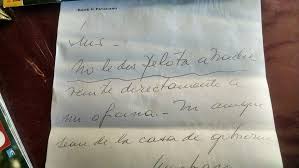 Luis -
No le des pelota a nadie
remite directamente a
mi oficina - Ni aunque
sean de la casa de gobierno